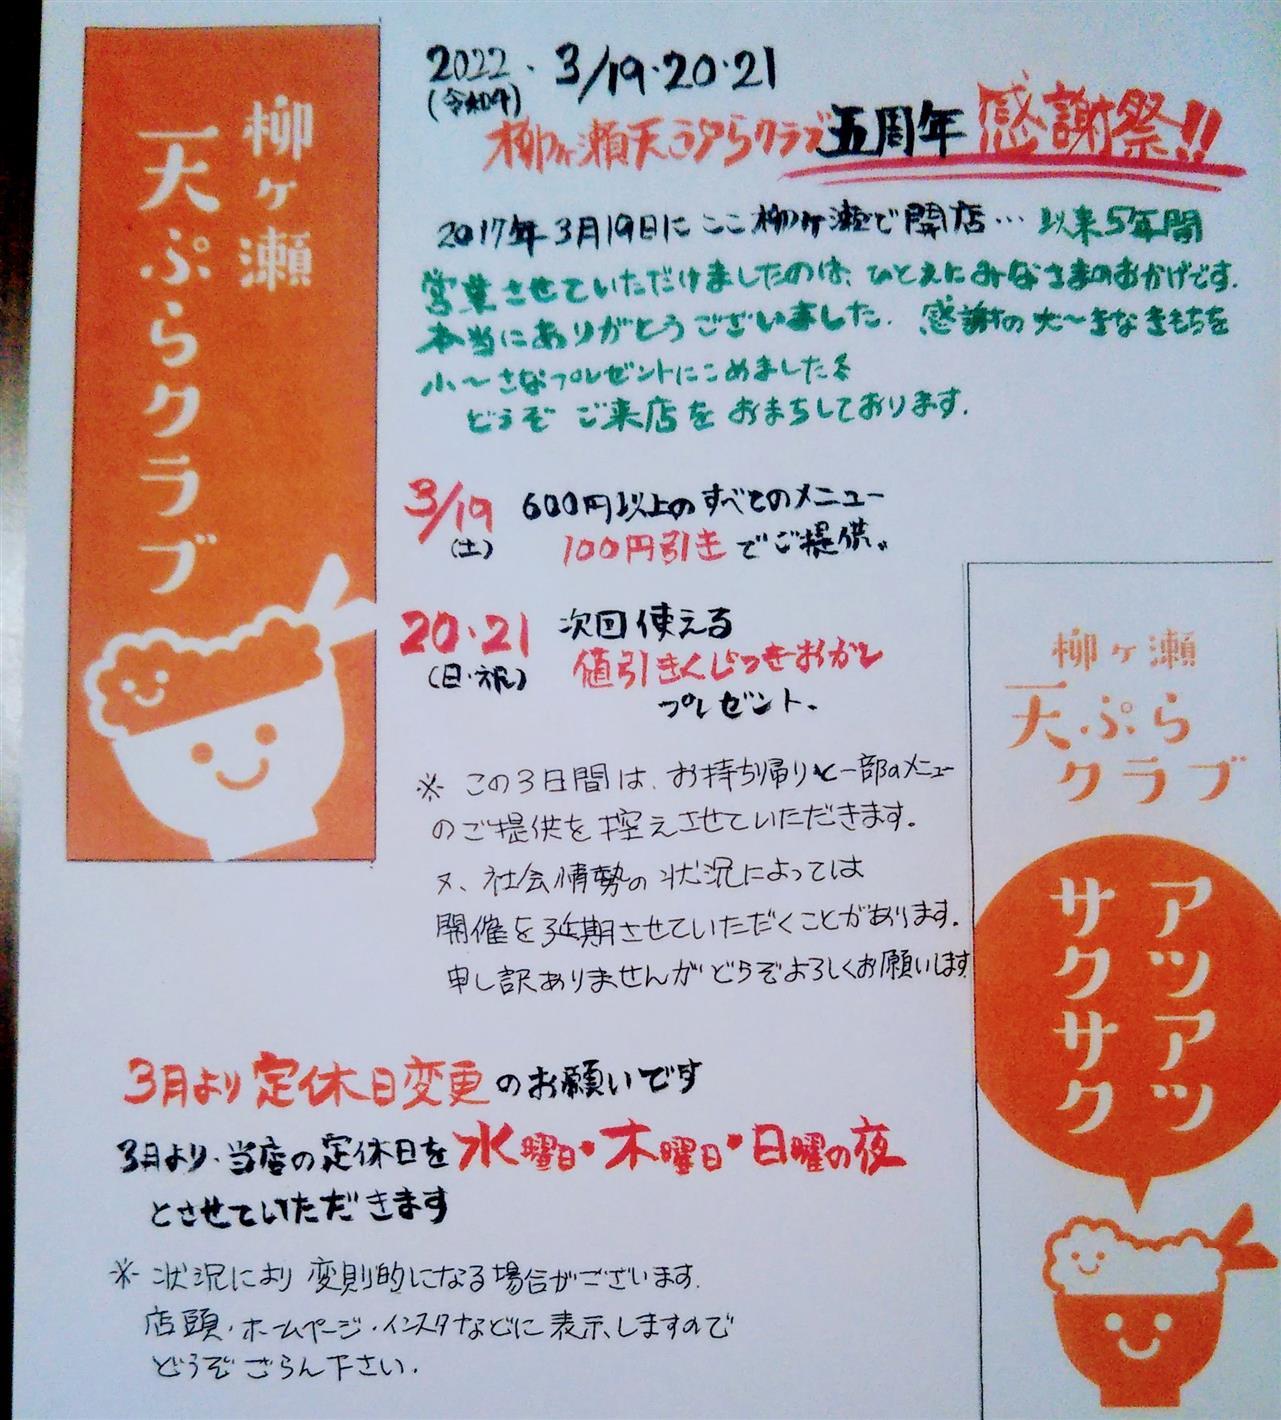 柳ヶ瀬
天ぷらクラブ
2022. 3/19・20・21
(令和4)
柳ヶ瀬天ぷらクラブ五周年感謝祭!!
2017年3月19日にここ柳ヶ瀬で開店… 以来5年間
営業させていただけましたのは、ひとえにみなさまのおかげです.
本当にありがとうございました. 感謝の大〜きなきもちを
小〜さなプレゼントにこめました
どうぞ ご来店を おまちしております.
3/19 600円以上のすべてのメニュー
(土) 100円引き でご提供。
20・21 次回使える
(日・祝) 値引きくじつきおかし
プレゼント.
※ この3日間は、お持ち帰りと一部のメニュー
のご提供を控えさせていただきます.
又、社会情勢の状況によっては
開催を延期させていただくことがあります.
申し訳ありませんがどうぞよろしくお願いします
柳ヶ瀬
天ぷら
クラブ
アツアツ
サクサク
3月より定休日変更のお願いです
3月より、当店の定休日を水曜日・木曜日・日曜の夜
とさせていただきます
※ 状況により変則的になる場合がございます.
店頭・ホームページ・インスタなどに表示しますので
どうぞごらん下さい.